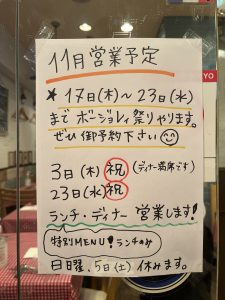 11月営業予定
★ 17日(木)〜23日(水)
まで ボージョレ祭りやります。
ぜひ御予約下さい
3日(木)祝 (ディナー満席です)
23日(水)祝
ランチ・ディナー 営業します!
特別MENU!ランチのみ
日曜、5日(土)休みます。